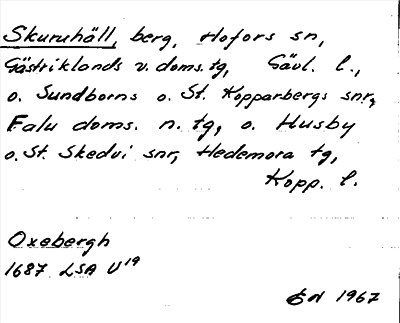 Skuruhäll, berg, Hofors sn,
Gästriklands v. doms. tg, Gävl. l.,
o. Sundborns o. St. Kopparbergs snr,
Falu doms. n. tg, o. Husby
o. St. Skedvi snr, Hedemora tg,
Kopp. l.
Oxebergh
1687 LSA U19
EN 1967